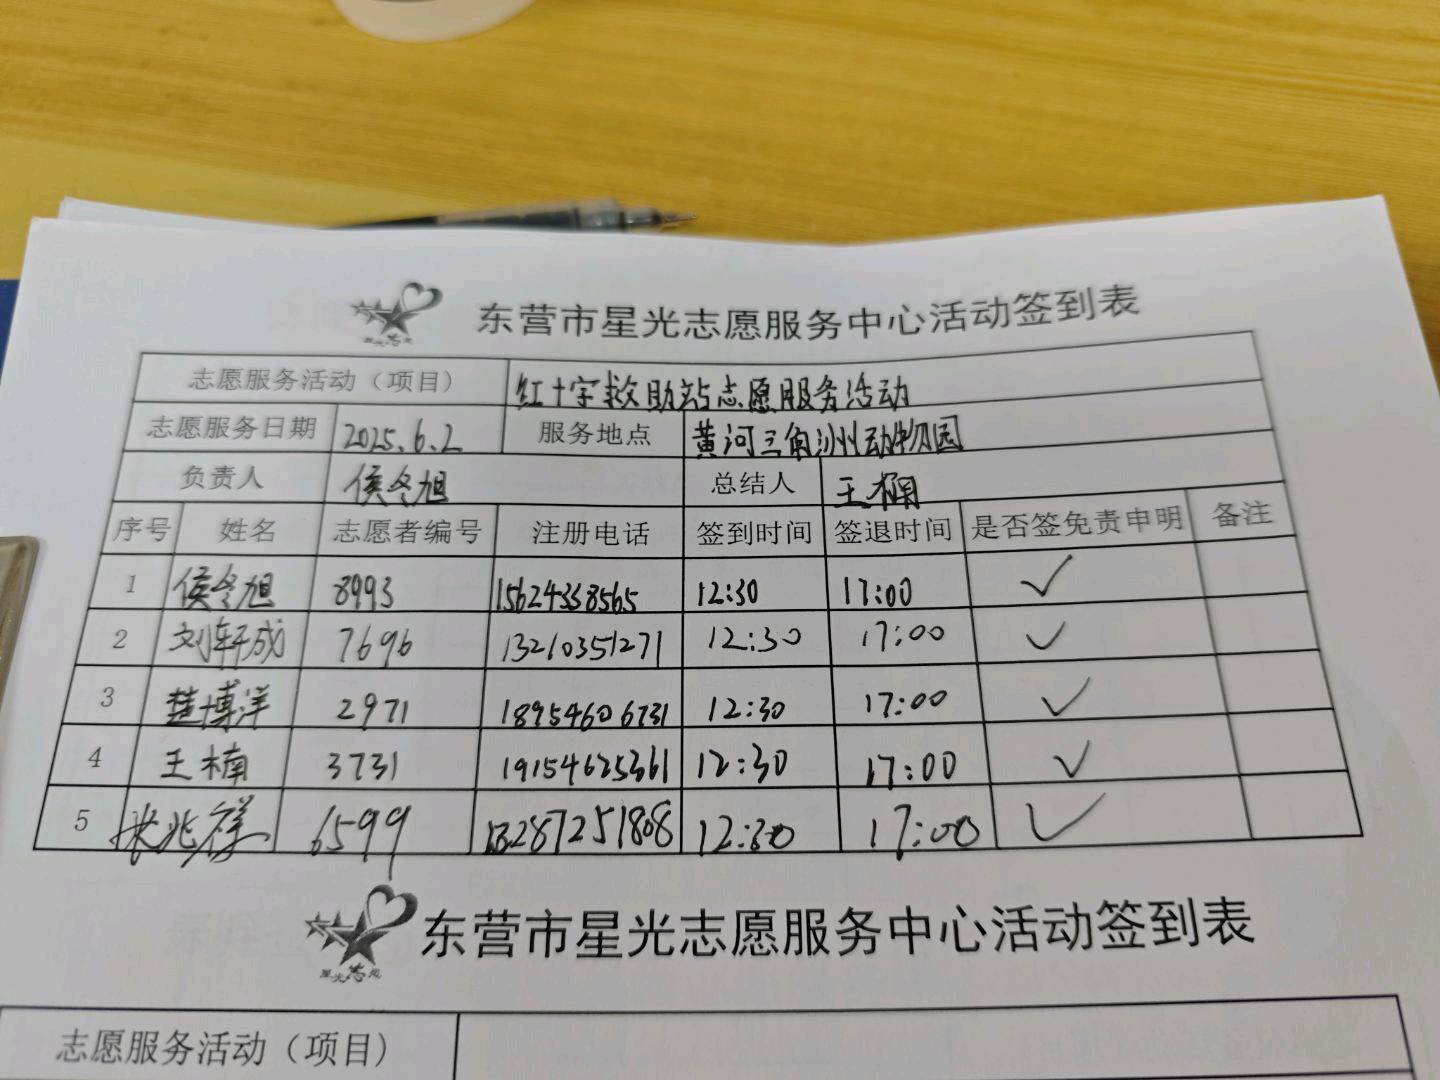 东营市星光志愿服务中心活动签到表
志愿服务活动（项目） 红十字救助站志愿服务活动
志愿服务日期 2025.6.2 服务地点 黄河三角洲动物园
负责人 侯冬旭 总结人 王楠
序号 姓名 志愿者编号 注册电话 签到时间 签退时间 是否签免责申明 备注
1 侯冬旭 8993 15624338565 12:30 17:00 ✓
2 刘轩成 7696 13210351271 12:30 17:00 ✓
3 楚博洋 2971 18954606731 12:30 17:00 ✓
4 王楠 3731 19154625361 12:30 17:00 ✓
5 6599 13287251808 12:30 17:00 ✓
星光志愿
东营市星光志愿服务中心活动签到表
志愿服务活动（项目）